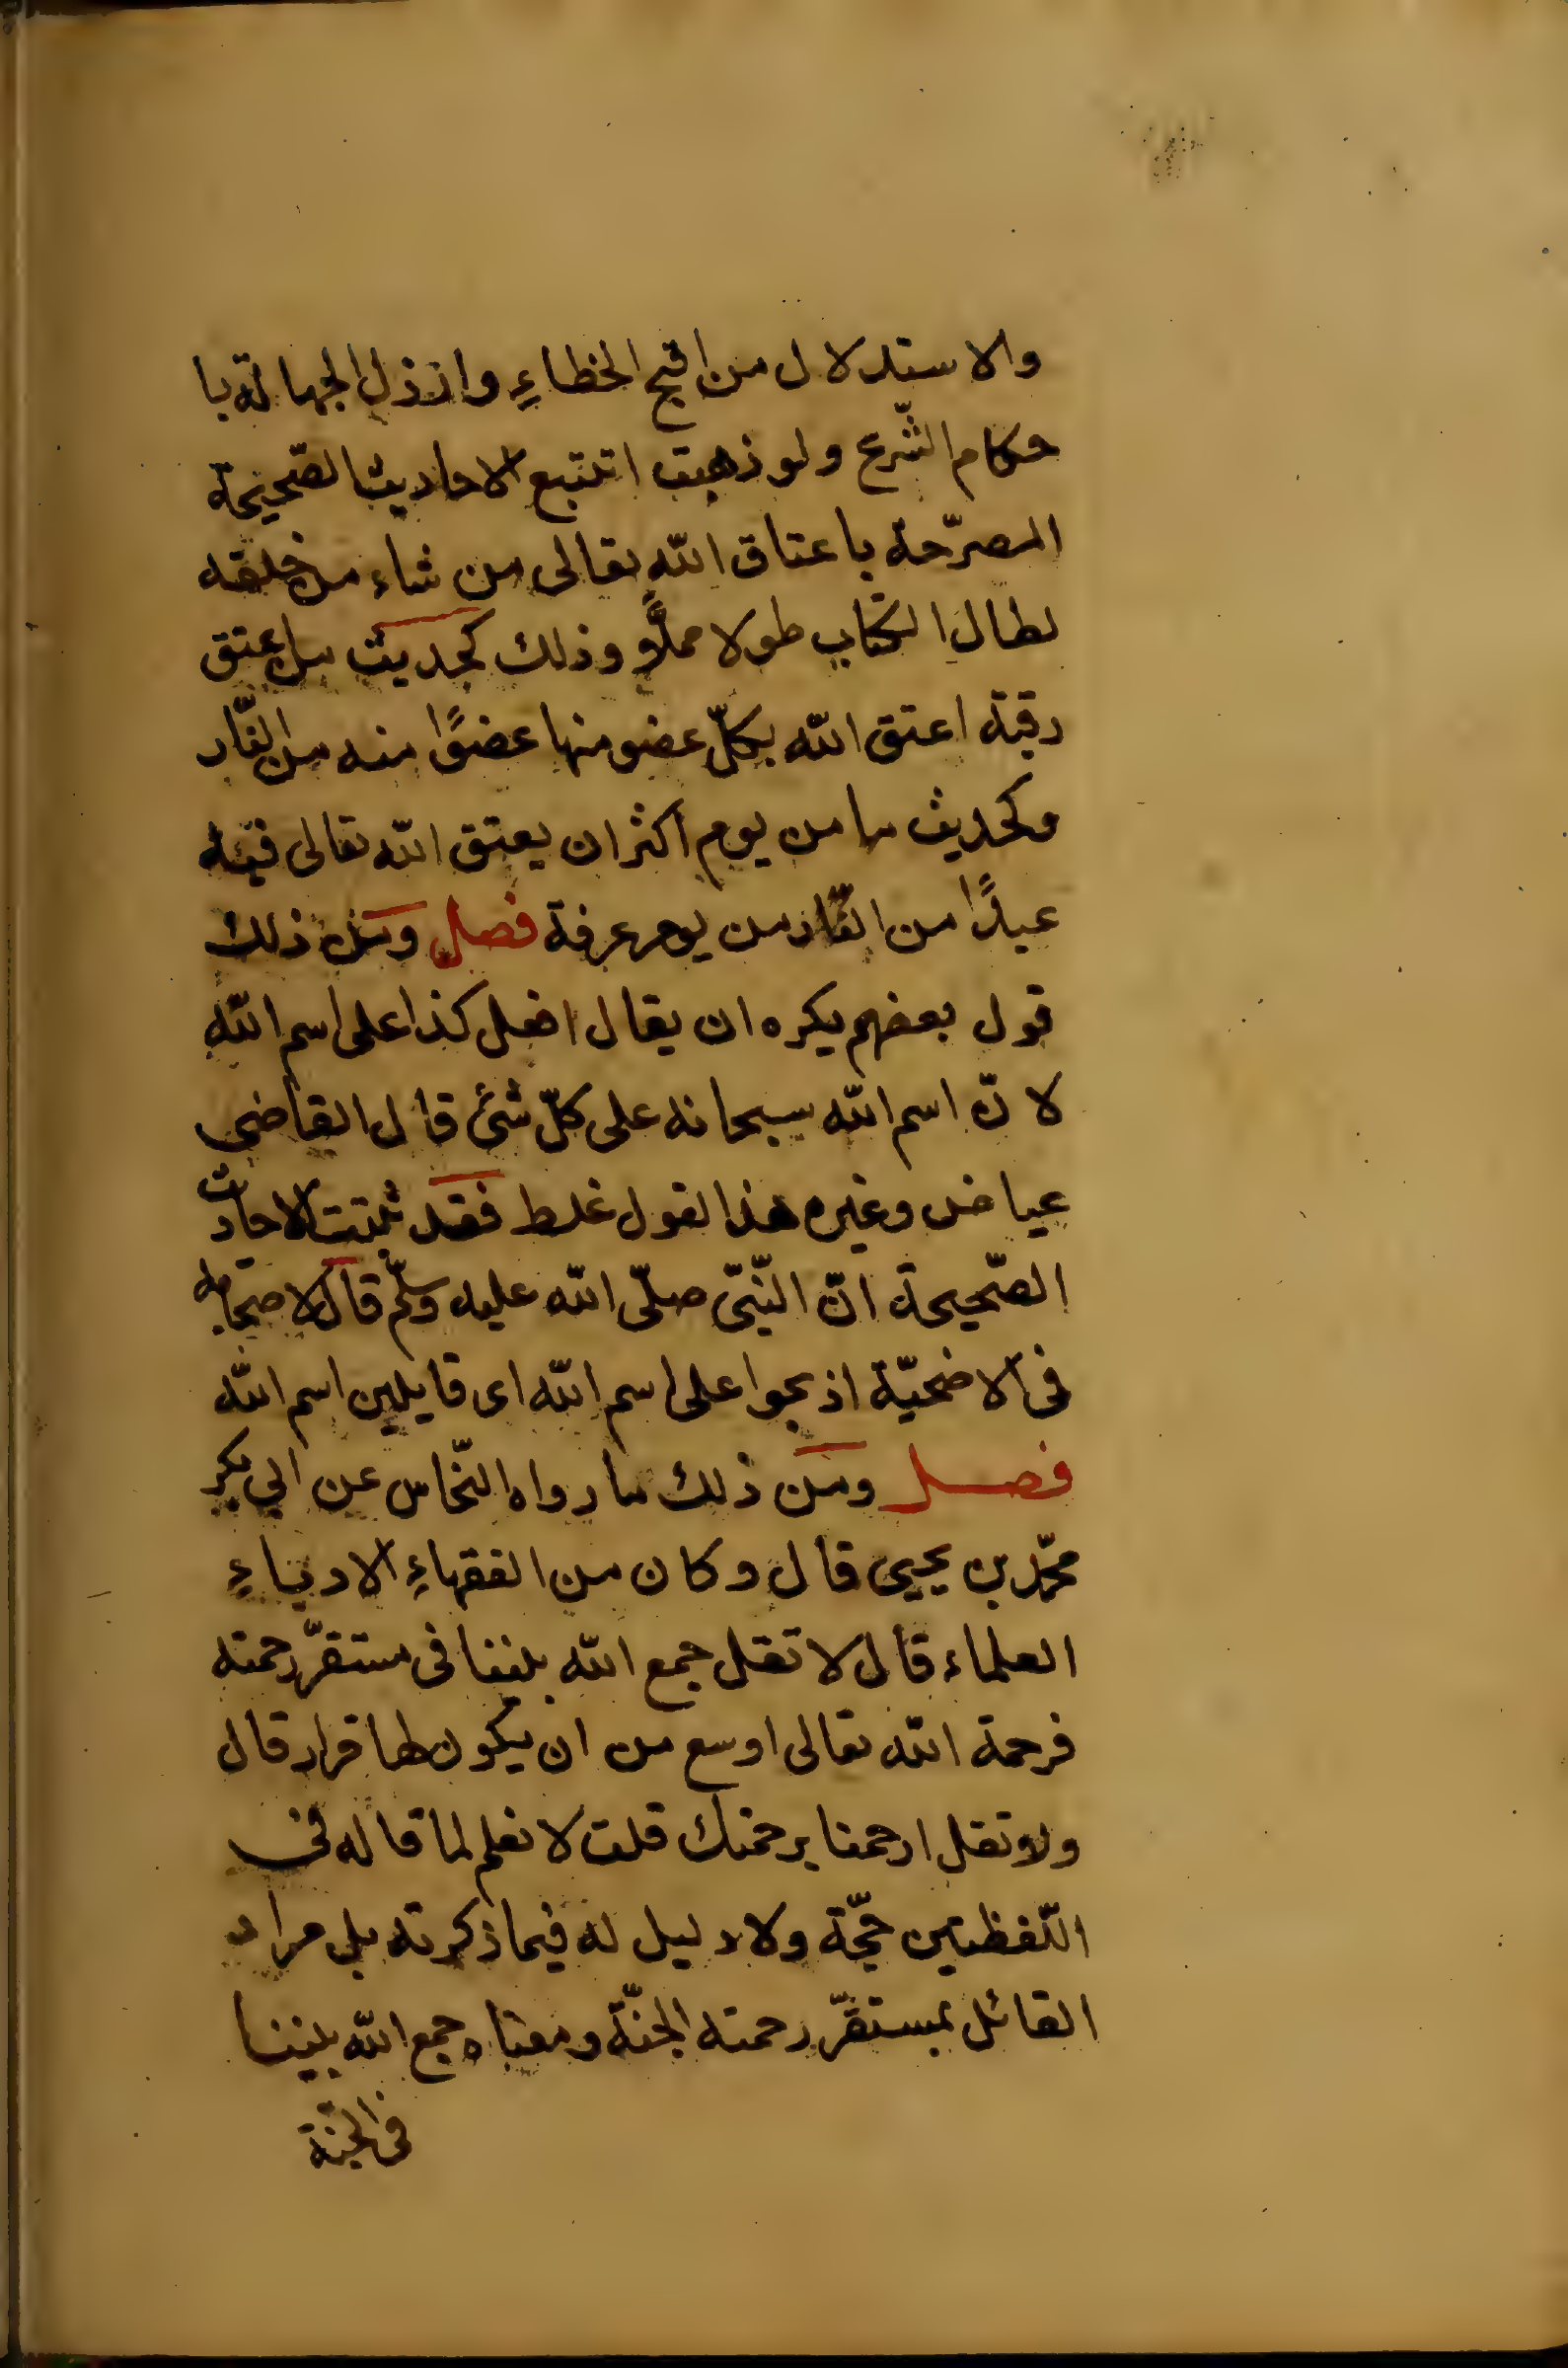 والاستدلال من اقبح الخطاءِ وارذل الجهالة با
حكام الشّرع ولو ذهبت اتتبع الاحاديث الصّحيحة
المصرّحة باعتاق الله تعالى من شاء من خلقه
لطال الكتاب طولا مملًّا وذلك كحديث من اعتق
رقبة اعتق الله بكلّ عضو منها عضوًا منه من النّار
وكحديث ما من يوم اكثر ان يعتق الله تعالى فيه
عبدًا من النّار من يوم عرفة فصل ومن ذلك
قول بعضهم يكره ان يقال افعل كذا على اسم الله
لانّ اسم الله سبحانه على كلّ شئ قال القاضى
عياض وغيره هذا القول غلط فقد ثبتت الاحاديث
الصّحيحة انّ النّبىّ صلّى الله عليه وسلّم قال لاصحابه
فى الاضحيّة اذبحوا على اسم الله اى قايلين اسم الله
فصل ومن ذلك ما رواه النّحاس عن ابي بكر
محمّد بن يحيى قال وكان من الفقهاءِ الادباءِ
العلماء قال لا تقل جمع الله بيننا فى مستقرّ رحمته
فرحمة الله تعالى اوسع من ان يكون لها قرار قال
ولا تقل ارحمنا برحمتك قلت لا نعلم لما قاله فى
اللّفظتين حجّة ولا دليل له فيما ذكرته بل مراد
القائل بمستقرّ رحمته الجنّة ومعناه جمع الله بيننا
فى الجنّة